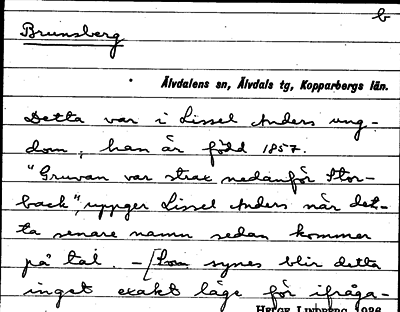 b
Brunsberg
Älvdalens sn, Älvdals tg, Kopparbergs län.
Detta var i Lissel Anders ung-
dom, han är född 1857.
"Gruvan var strax nedanför Stor-
back", uppger Lissel Anders när det-
ta senare namn sedan kommer
på tal. – [Som synes blir detta
inget exakt läge för ifråga-
HELGE LINDBERG 1926